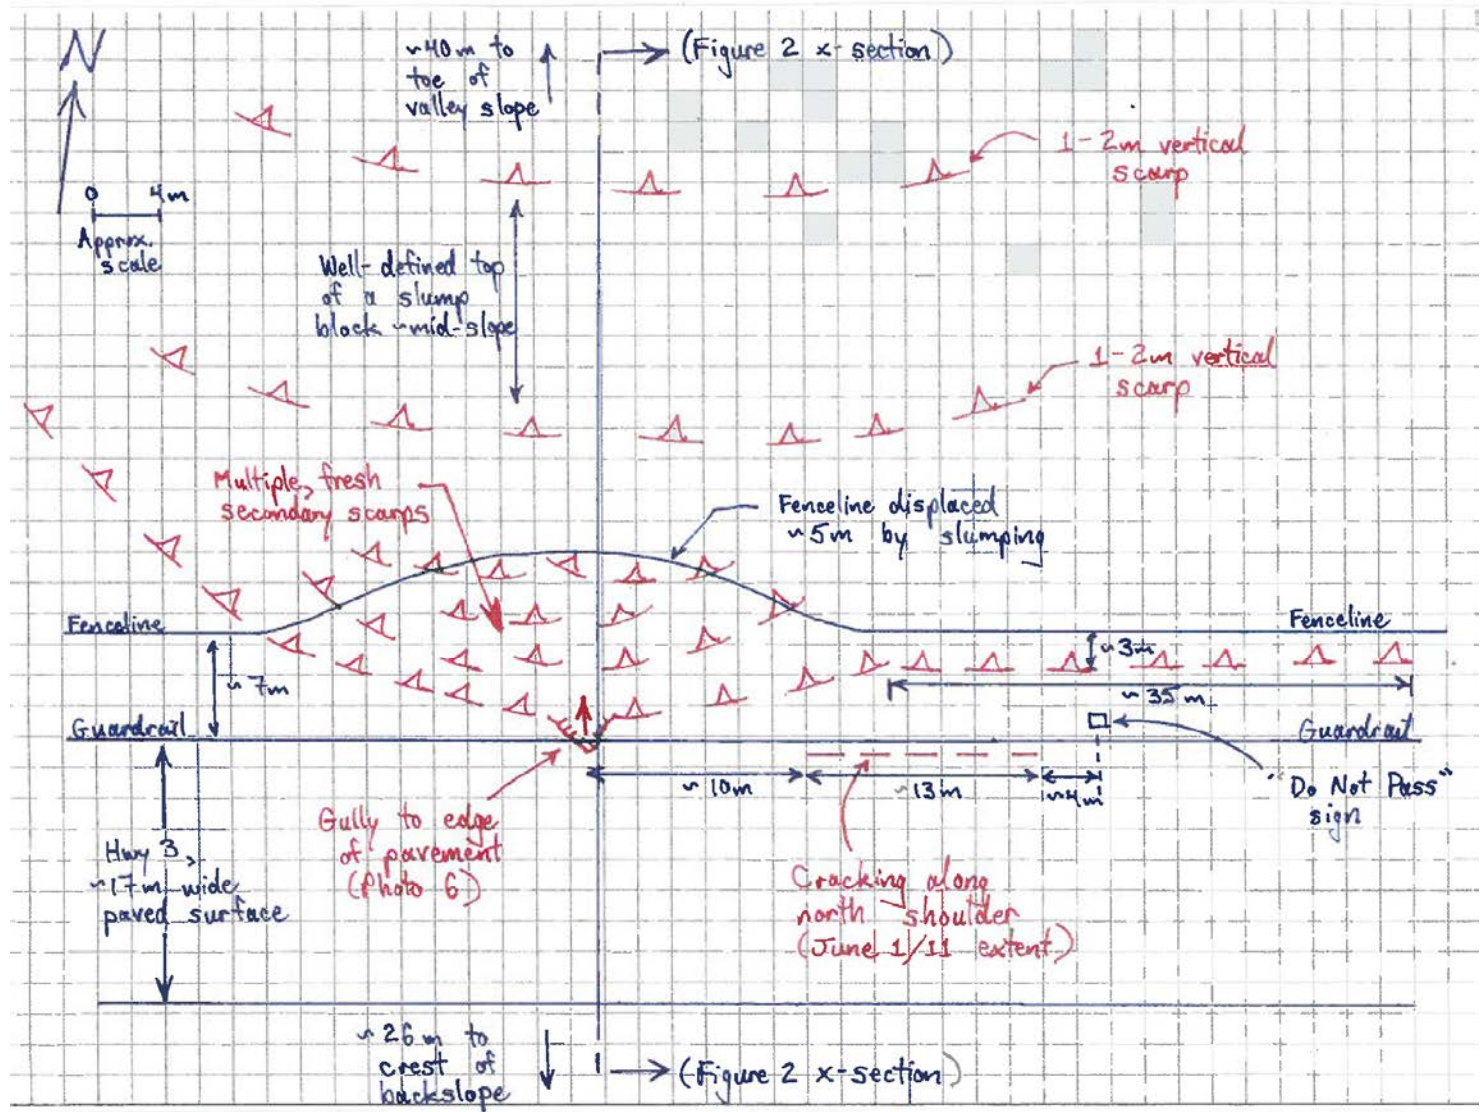 N
~40m to
toe of
valley slope
(Figure 2 x-section)
1-2m vertical
scarp
0 4m
Approx.
scale
Well-defined top
of a slump
block ~mid-slope
1-2m vertical
scarp
Multiple, fresh
secondary scarps
Fenceline displaced
~5m by slumping
Fenceline
Fenceline
~3m
~7m
~35m
Guardrail
Guardrail
~10m
~13m
~4m
"Do Not Pass"
sign
Gully to edge
of pavement
(Photo 6)
Hwy 3,
~17m wide
paved surface
Cracking along
north shoulder
(June 1/11 extent)
~26m to
crest of
backslope
(Figure 2 x-section)